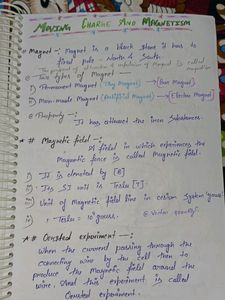 MOVING CHARGE AND MAGNETISM
Magnet - Magnet is a black stone it has to
fixed pole - North & South.
The property of attraction & repulsion of Magnet is called magnetism
Two types of Magnet -
i) Permanent Magnet (They Magnet) → (Bar Magnet)
ii) Man-made Magnet (Artificial Magnet) → (Electro Magnet)
Property -:
It has attracted the iron Substances.
* # Magnetic field -:
A field in which experiences the
Magnetic force is called Magnetic field.
i) It is denoted by [B]
ii) Its SI unit is Tesla [T].
iii) Unit of Magnetic field line in certain System 'gauss'
iv) 1 - Tesla = 10⁴ gauss. @ Vector quantity.
* # Oersted experiment -:
When the current passing through the
connecting wire by the cell then to
produce the Magnetic field around the
wire. And this experiment is called
Oersted experiment.